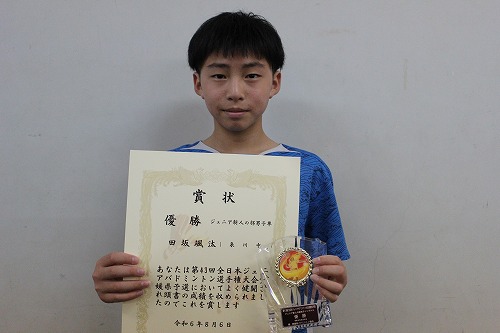 賞状
優勝 ジュニア新人の部男子単
田坂颯汰
あなたは第43回全日本ジュニ
アバドミントン選手権大会
媛県予選においてよく健闘
れ頭書の成績を収められまし
たのでこれを賞します
令和6年8月6日